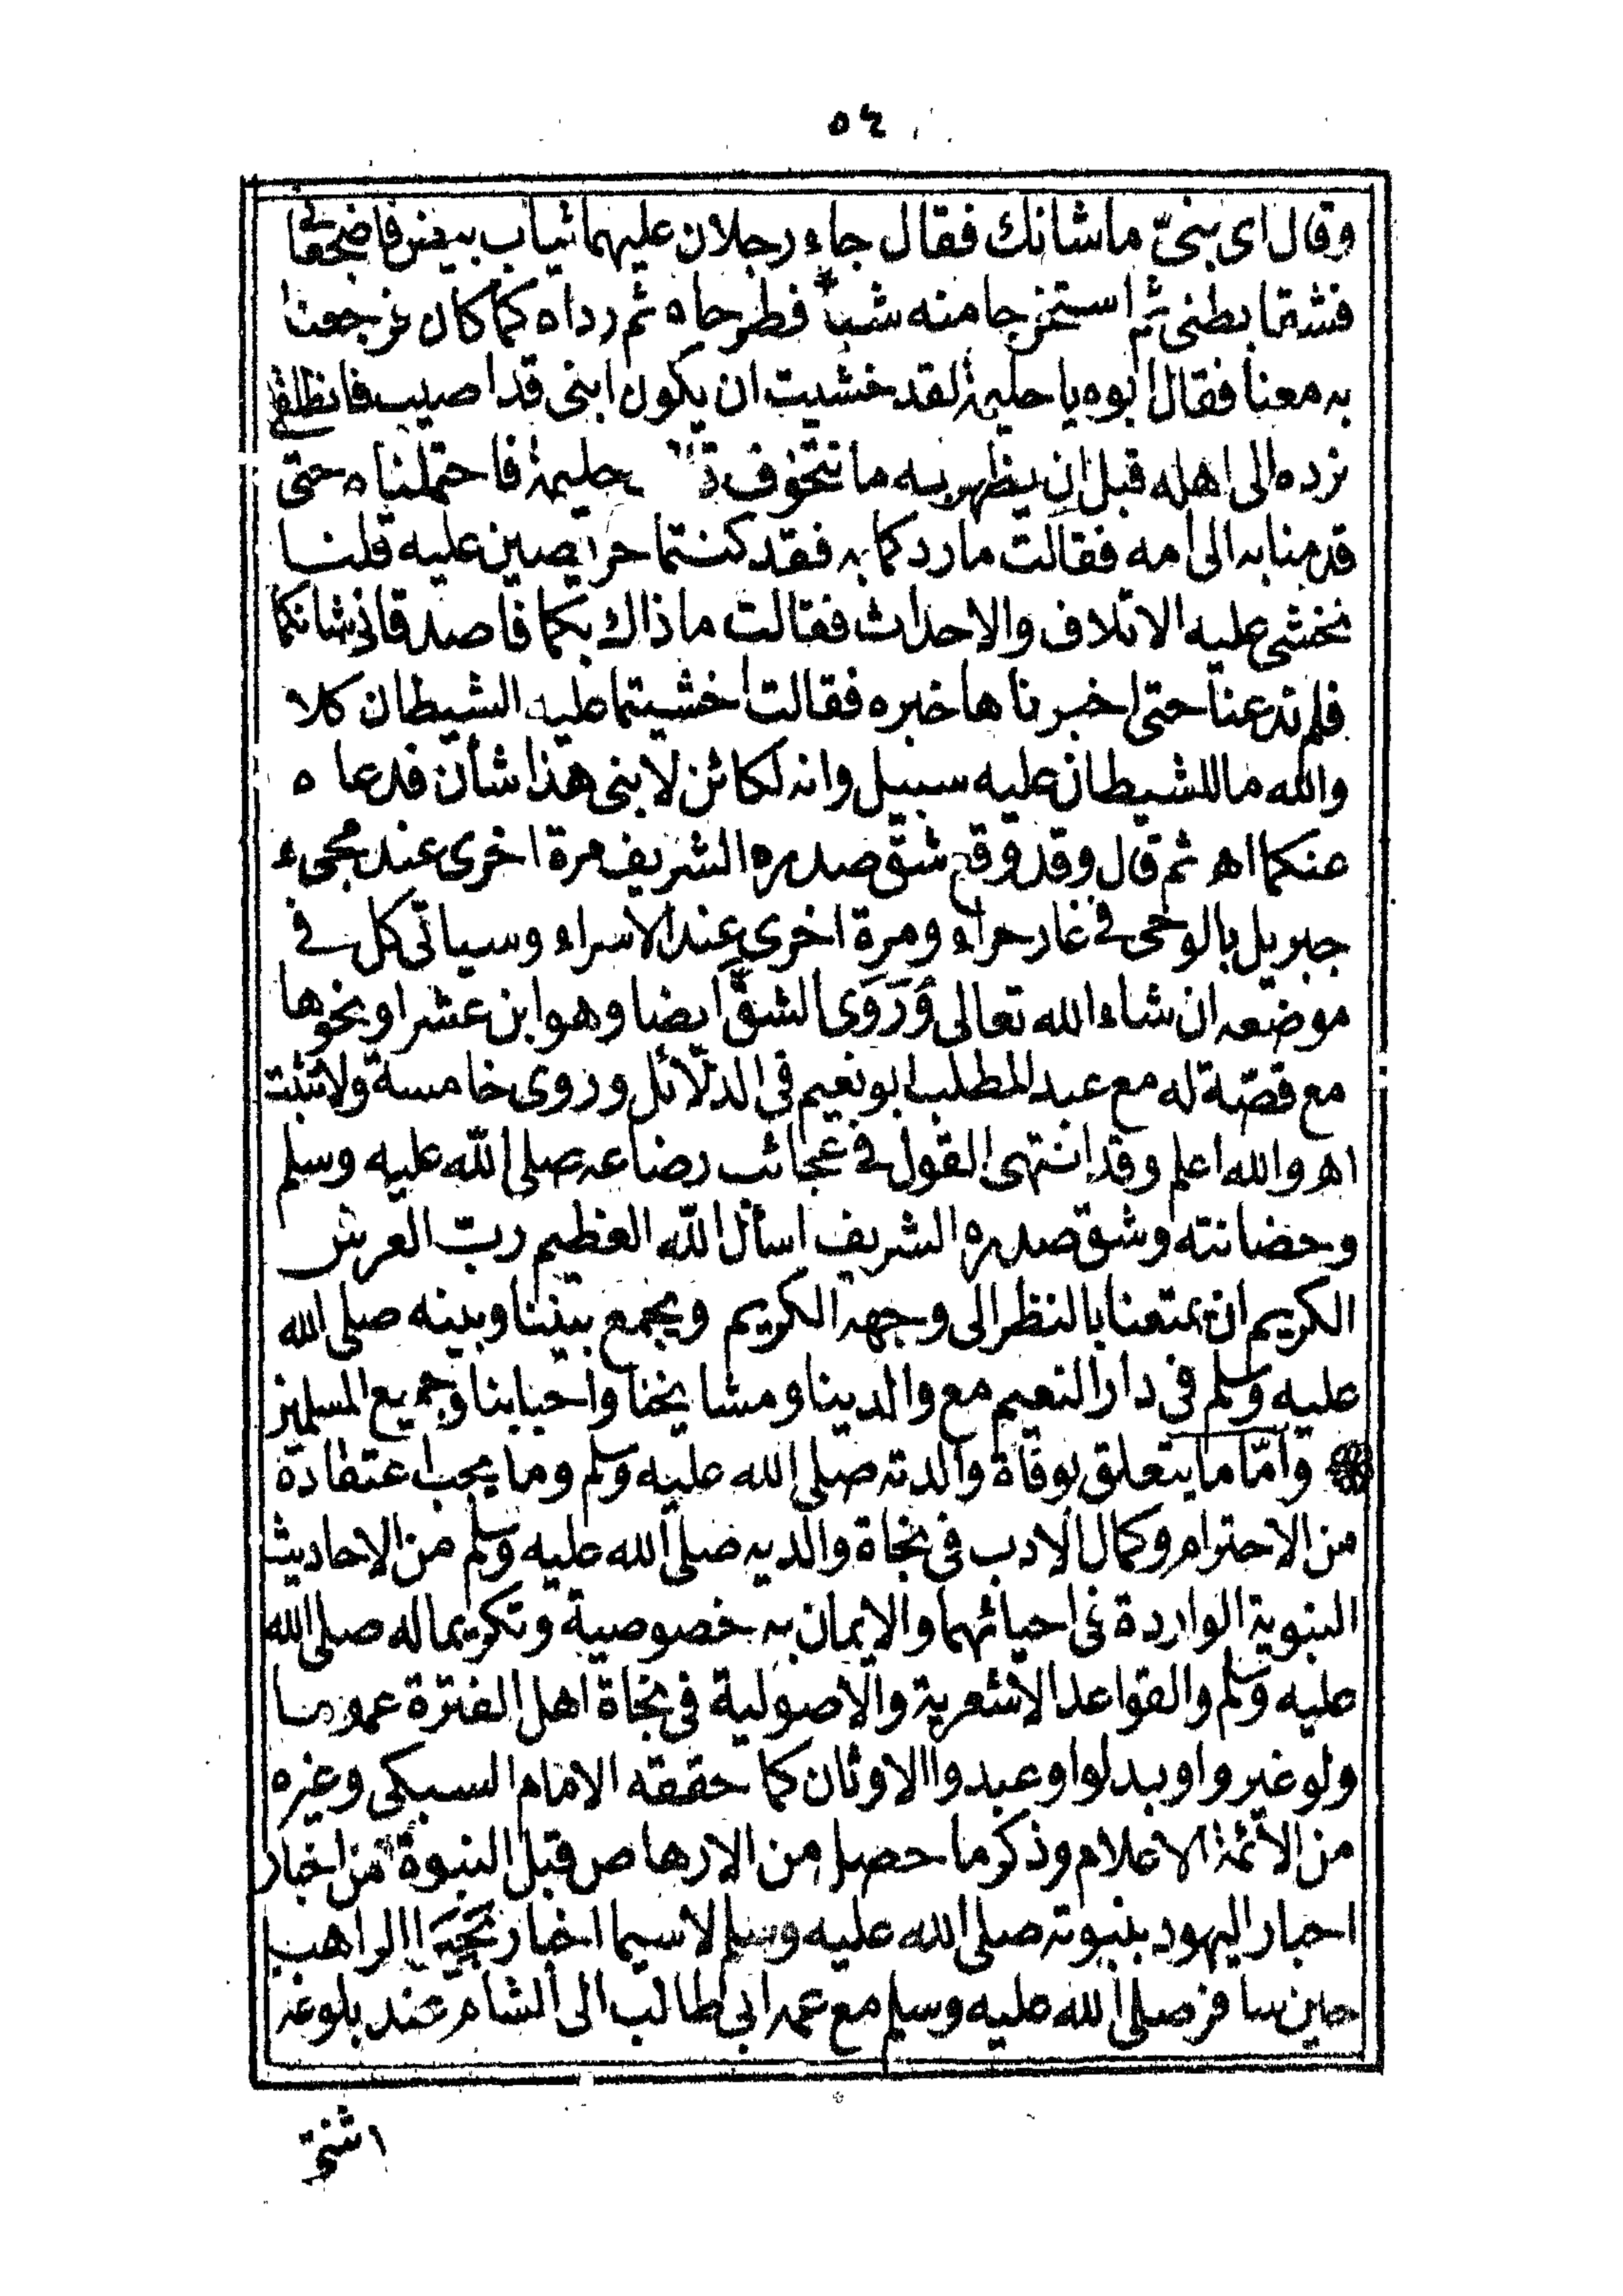 ٥٤
وقال اى بنىّ ما شانك فقال جاء رجلان عليهما ثياب بيض فاضجعا
فشقا بطنى ثم استخرجا منه شيأ فطرحاه ثم رداه كما كان فرجعنا
به معنا فقال ابوه يا حليمة لقد خشيت ان يكون ابنى قد اصيب فانطلقى
نرده الى اهله قبل ان يظهر به ما نتخوف حليمة فاحتملناه حتى
قدمنا به الى امه فقالت ما رد كما به فقد كنتما حريصين عليه قلنا
نخشى عليه الاتلاف والاحداث فقالت ماذاك بكما فاصدقانى شانكما
فلم تدعنا حتى اخبرناها خبره فقالت اخشيتما عليه الشيطان كلا
والله ما للشيطان عليه سبيل وانه لكائن لابنى هذا شأن فدعاه
عنكما اه ثم قال وقد وقع شق صدره الشريف مرة اخرى عند مجىء
جبريل بالوحى فى غار حراء ومرة اخرى عند الاسراء وسياتى كل فى
موضعه ان شاء الله تعالى وَرَوَى الشقَّ ايضا وهو ابن عشر او نحوها
مع قصّة له مع عبد المطلب ابو نعيم فى الدلائل وروى خامسة ولا تثبت
اه والله اعلم وقد انتهى القول فى عجائب رضاعه صلى الله عليه وسلم
وحضانته وشق صدره الشريف اسأل الله العظيم ربّ العرش
الكريم ان يمتعنا بالنظر الى وجهه الكريم ويجمع بيننا وبينه صلى الله
عليه وسلم فى دار النعيم مع والدينا ومشايخنا واحبابنا وجميع المسلمين
وأمّا ما يتعلق بوفاة والدته صلى الله عليه وسلم وما يجب اعتقاده
من الاحترام وكمال الادب فى نجاة والديه صلى الله عليه وسلم من الاحاديث
النبوية الواردة فى احيائهما والايمان به خصوصية وتكريما له صلى الله
عليه وسلم والقواعد الاشعرية والاصولية فى نجاة اهل الفترة عموما
ولو غيروا وبدلوا وعبدوا الاوثان كما حققه الامام السبكى وغيره
من الأئمة الاعلام وذكر ما حصل من الارهاص قبل النبوة من اخبار
احبار اليهود بنبوته صلى الله عليه وسلم لاسيما اخبار بَحِيَرا الراهب
حين سافر صلى الله عليه وسلم مع عمه ابى طالب الى الشام عند بلوغه
اثنتى